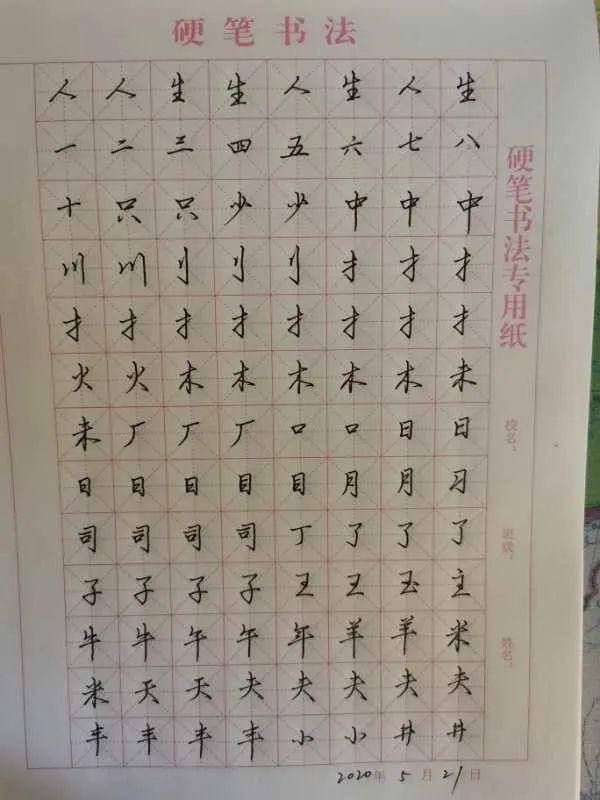 硬笔书法
人人生生人生人生
一二三四五六七八
十只只少少中中中
川川刂刂刂才才才
才才才才才才才才
火火木木木木木未
未厂厂厂口口日日
日日日目目月月习
司司司司丁了了了
子子子子王王玉主
牛牛午午年羊羊米
米天天夫夫夫夫夫
丰丰丰丰小小井井
2020年5月21日
硬笔书法专用纸
校名：
班级：
姓名：